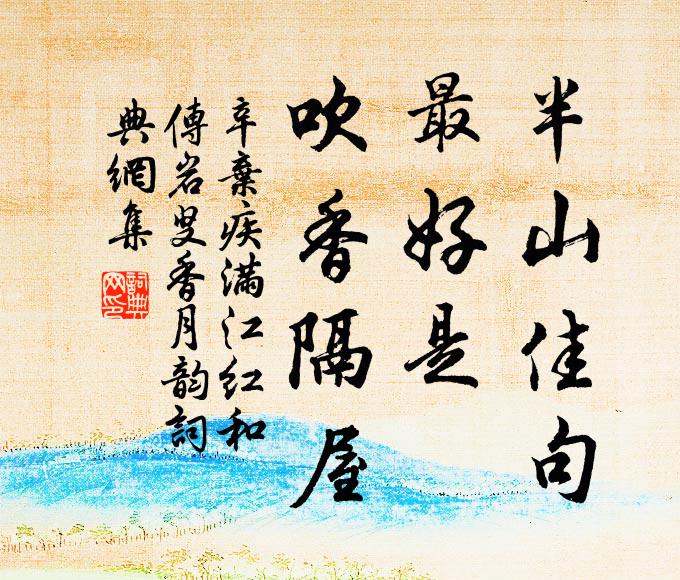 半山佳句
最好是
吹香隔屋
辛棄疾滿江紅和
傅岩叟香月韵詞
典網集
詞典
网印